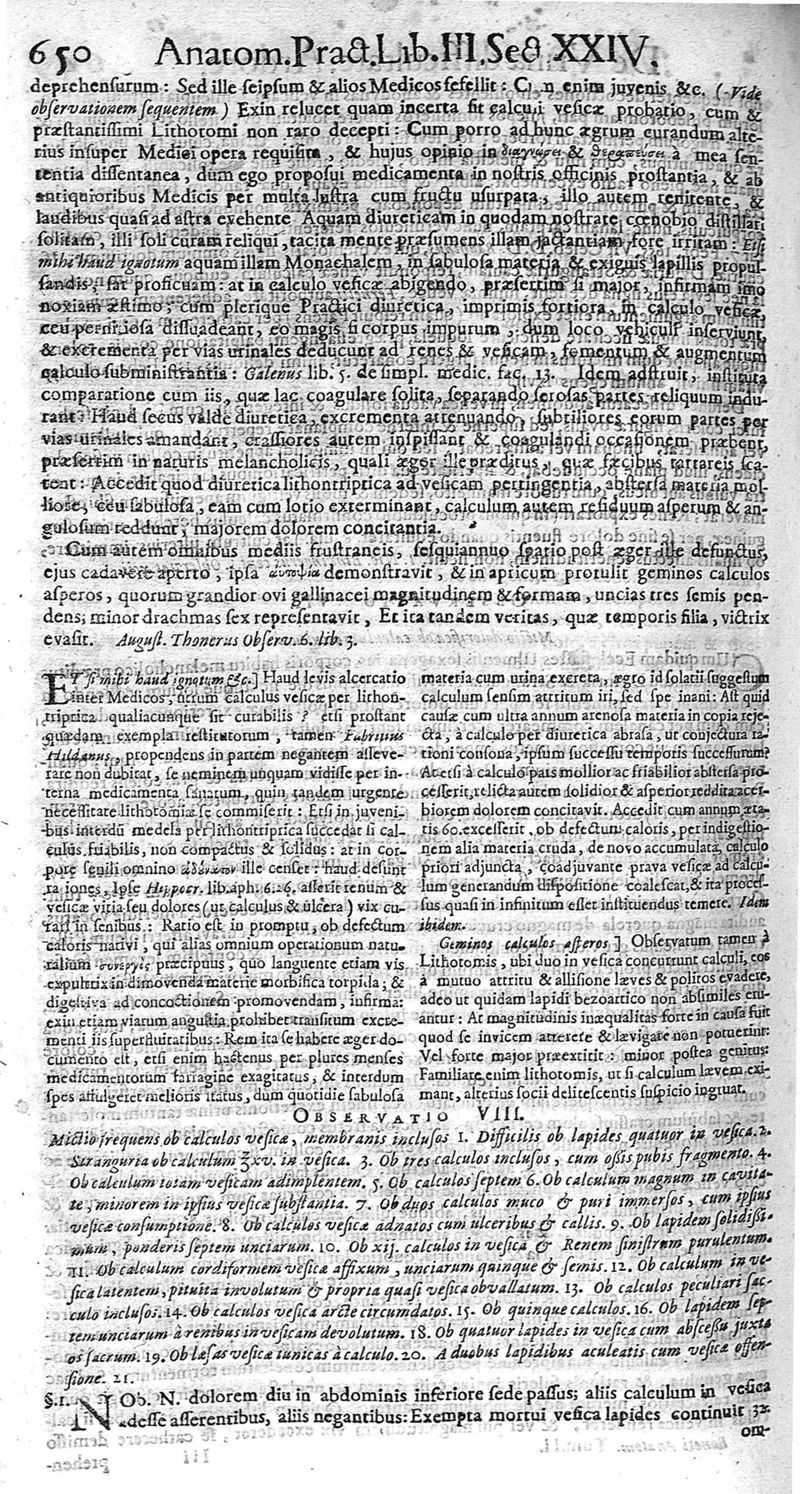 650 Anatom. Pract. Lib. III. Sect XXIV.
deprehensurum : Sed ille seipsum & alios Medicos fefellit : enim juvenis &c. (Vide
observationem sequentem.) Exin relucet quam incerta sit calculi vesicæ probatio, cum &
præstantissimi Lithotomi non raro decepti : Cum porro ad hunc ægrum curandum alte-
rius insuper Medici opera requisita, & hujus opinio in διαγνώσει & θεραπεύσει à mea sen-
tentia dissentanea, dum ego proposui medicamenta in nostris officinis prostantia, & ab
antiquioribus Medicis per multa lustra cum fructu usurpata, illo autem renitente, &
laudibus quasi ad astra evehente Aquam diureticam in quodam nostrate cœnobio distillari
solitam, illi soli curam reliqui, tacita mente præsumens illam jactantiam fore irritam : Etsi
mihi haud ignotum aquam illam Monachalem, in sabulosa materia & exiguis lapillis propul-
sandis, sat proficuam: at in calculo vesicæ abigendo, præsertim si major, infirmam imo
noxiam æstimo; cum plerique Practici diuretica, imprimis fortiora, in calculo vesicæ,
ceu perniciosa dissuadeant, eo magis si corpus impurum, dum loco vehiculi inserviunt,
& excrementa per vias urinales deducunt ad renes & vesicam, fomentum & augmentum
calculo subministrantia : Galenus lib. 5. de simpl. medic. fac. 13. Idem adstruit, instituta
comparatione cum iis, quæ lac coagulare solita, separando serosas partes reliquum indu-
rant : Haud secus valde diuretica, excrementa attenuando, subtiliores eorum partes per
vias urinales amandant, crassiores autem inspissant & coagulandi occasionem præbent,
præsertim in naturis melancholicis, quali æger ille præditus, quæ fæcibus tartareis sca-
tent : Accedit quod diuretica lithontriptica ad vesicam pertingentia, abstersa materia mol-
liore, ceu sabulosa, eam cum lotio exterminant, calculum autem residuum asperum & an-
gulosum reddunt, majorem dolorem concitantia.
Cum autem omnibus mediis frustraneis, sesquiannuo spatio post æger ille defunctus,
ejus cadavere aperto, ipsa αὐτοψία demonstravit, & in apricum protulit geminos calculos
asperos, quorum grandior ovi gallinacei magnitudinem & formam, uncias tres semis pen-
dens; minor drachmas sex representavit, Et ita tandem veritas, quæ temporis filia, victrix
evasit. August. Thonerus Observ. 6. lib. 3.
ETsi mihi haud ignotum &c.] Haud levis alcercatio
inter Medicos, utrum calculus vesicæ per lithon-
triptica qualiacunque sit curabilis ? etsi prostant
quædam exempla restitutorum, tamen Fabritius
Hildanus, propendens in partem negantem asseve-
rare non dubitat, se neminem unquam vidisse per in-
terna medicamenta sanatum, quin tandem urgente
necessitate lithotomiæ se commiserit : Etsi in juveni-
bus interdū medela per lithontriptica succedat si cal-
culus friabilis, non compactus & solidus : at in cor-
pore senili omnino ἀδύνατον ille censet : haud desunt
rationes, Ipse Hippocr. lib. aph. 6.26, asserit renum &
vesicæ vitia seu dolores (ut calculus & ulcera) vix cu-
rari in senibus : Ratio est in promptu, ob defectum
caloris nativi, qui alias omnium operationum natu-
ralium συνεργὸς præcipuus, quo languente etiam vis
expultrix in dimovenda materie morbifica torpida; &
digestiva ad concoctionem promovendam, infirma:
exin etiam viarum angustia prohibet transitum excre-
menti iis superfluitatibus: Rem ita se habere æger do-
cumento est, etsi enim hactenus per plures menses
medicamentorum farragine exagitatus, & interdum
spes affulgeret melioris status, dum quotidie sabulosa
materia cum urina excreta, ægro id solatii suggestum
calculum sensim attritum iri, sed spe inani: Ast quid
causæ cum ultra annum arenosa materia in copia reje-
cta, à calculo per diuretica abrasa, ut conjectura ra-
tioni consona, ipsum successu temporis successurum?
At etsi à calculo pars mollior ac friabilior abstersa pro-
cesserit, relicta autem solidior & asperior reddita acer-
biorem dolorem concitavit. Accedit cum annum æta-
tis 60. excesserit, ob defectum caloris, per indigestio-
nem alia materia cruda, de novo accumulata, calculo
priori adjuncta, coadjuvante prava vesicæ ad calcu-
lum generandum dispositione coalescat, & ita proces-
sus quasi in infinitum esset instituendus temere. Idem
ibidem.
Geminos calculos asperos ] Observatum tamen à
Lithotomis, ubi duo in vesica concurrunt calculi, eos
à mutuo attritu & allisione læves & politos evadere,
adeo ut quidam lapidi bezoartico non absimiles eru-
antur : At magnitudinis inæqualitas forte in causa fuit
quod se invicem atterere & lævigare non potuerint:
Vel forte major præextitit : minor postea genitus:
Familiare enim lithotomis, ut si calculum lævem exi-
mant, alterius socii delitescentis suspicio ingruat.
OBSERVATIO VIII.
Mictio frequens ob calculos vesicæ, membranis inclusos 1. Difficilis ob lapides quatuor in vesica. 2.
Stranguria ob calculum ℥xv. in vesica. 3. Ob tres calculos inclusos, cum ossis pubis fragmento. 4.
Ob calculum totam vesicam adimplentem. 5. Ob calculos septem 6. Ob calculum magnum in cavita-
te, minorem in ipsius vesicæ substantia. 7. Ob duos calculos muco & puri immersos, cum ipsius
vesicæ consumptione. 8. Ob calculos vesicæ adnatos cum ulceribus & callis. 9. Ob lapidem solidissi-
mum, ponderis septem unciarum. 10. Ob xij. calculos in vesica & Renem sinistrum purulentum.
11. Ob calculum cordiformem vesicæ affixum, unciarum quinque & semis. 12. Ob calculum in ve-
sica latentem, pituita involutum & propria quasi vesica obvallatum. 13. Ob calculos peculiari sac-
culo inclusos. 14. Ob calculos vesica arcte circumdatos. 15. Ob quinque calculos. 16. Ob lapidem sep-
tem unciarum à renibus in vesicam devolutum. 18. Ob quatuor lapides in vesica cum abscessu juxta
os sacrum. 19. Ob læsas vesicæ tunicas à calculo. 20. A duobus lapidibus aculeatis cum vesicæ offen-
sione. 21.
§. 1. NOb. N. dolorem diu in abdominis inferiore sede passus; aliis calculum in vesica
adesse asserentibus, aliis negantibus: Exempta mortui vesica lapides continuit 32.
om-